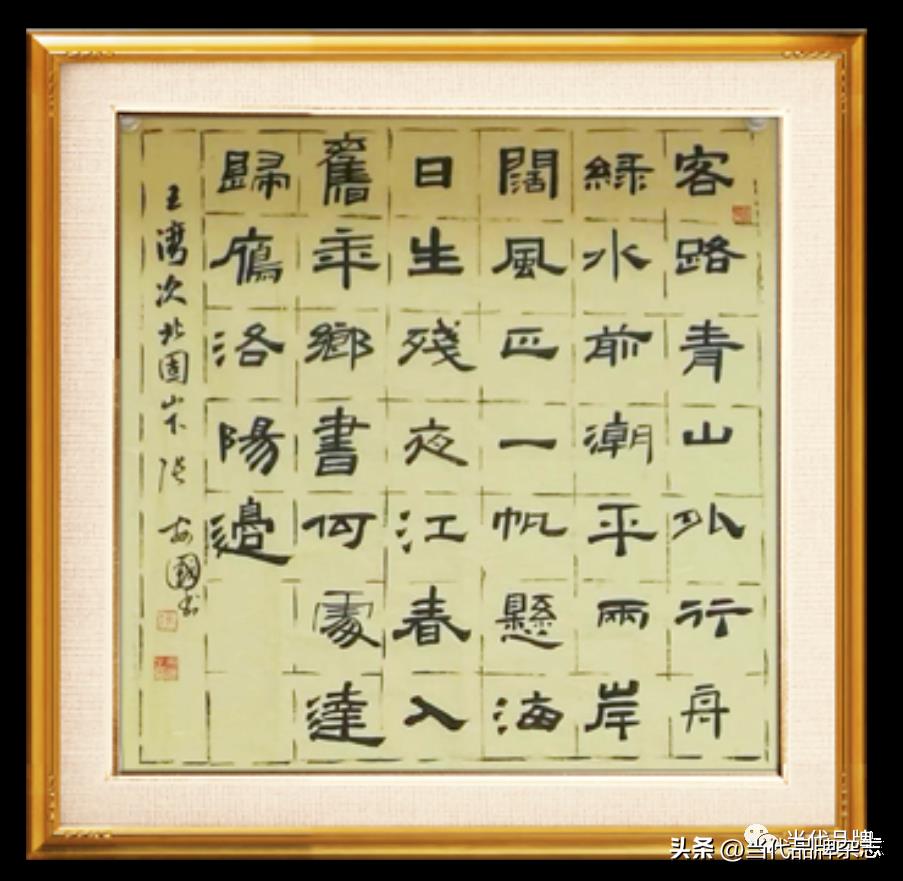 客路青山外行舟
緑水前潮平兩岸
闊風正一帆懸海
日生殘夜江春入
舊年鄉書何處達
歸鴈洛陽邊
王灣次北固山下 张安國书
当代品牌
头条 @当代品牌杂志